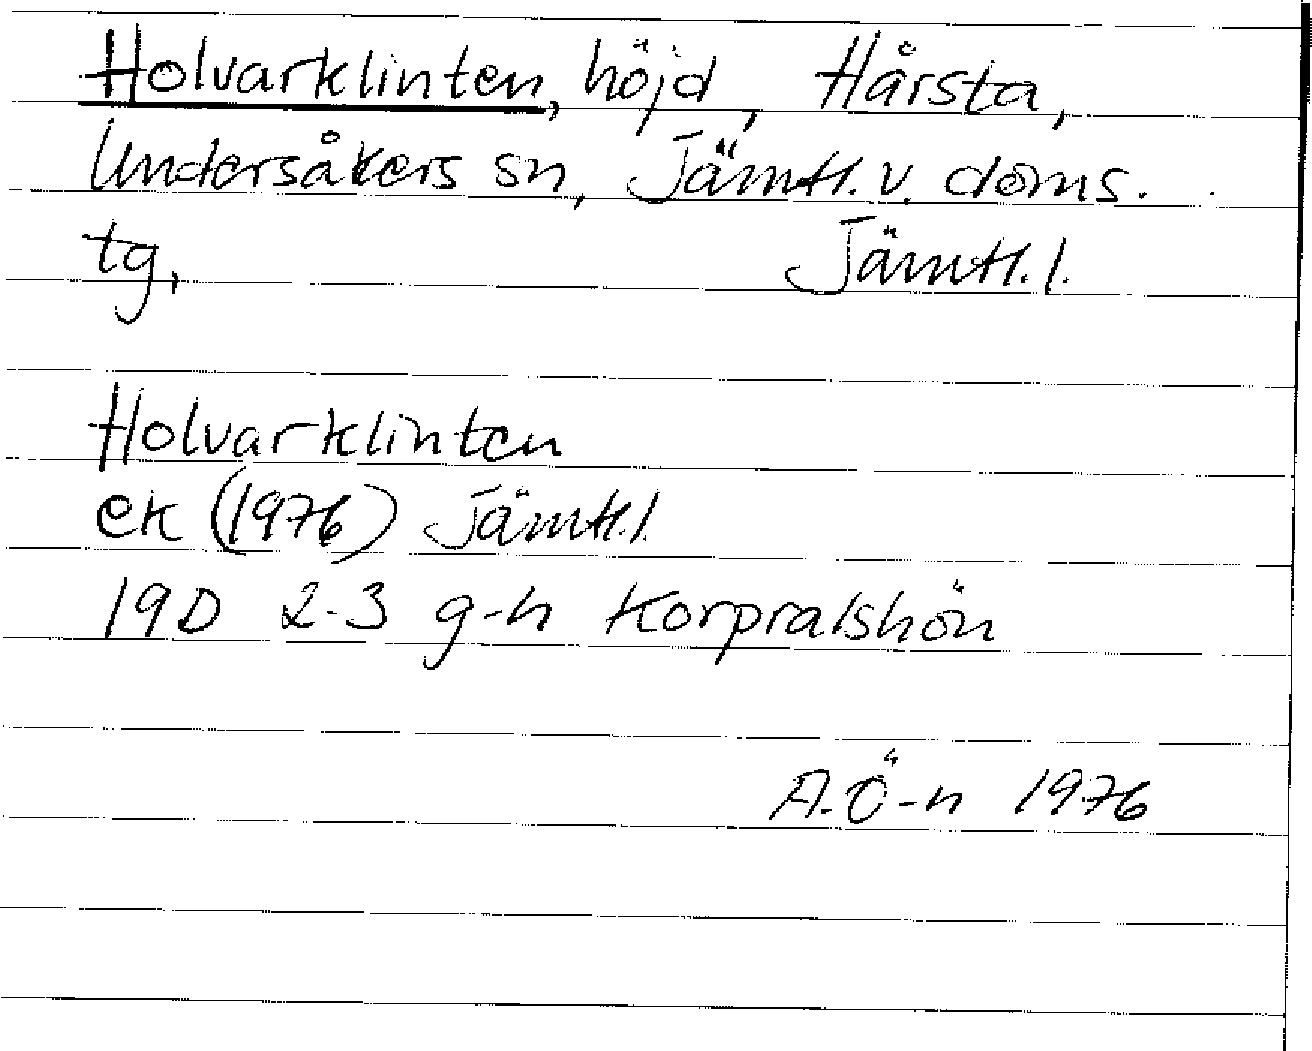 Holvarklinten, höjd, Hårsta,
Undersåkers sn, Jämtl. v. doms.
tg, Jämtl. l.
Holvarklinten
ek (1976) Jämtl. l.
19D 2-3 g-h Korpralshön
A. Ö-n 1976